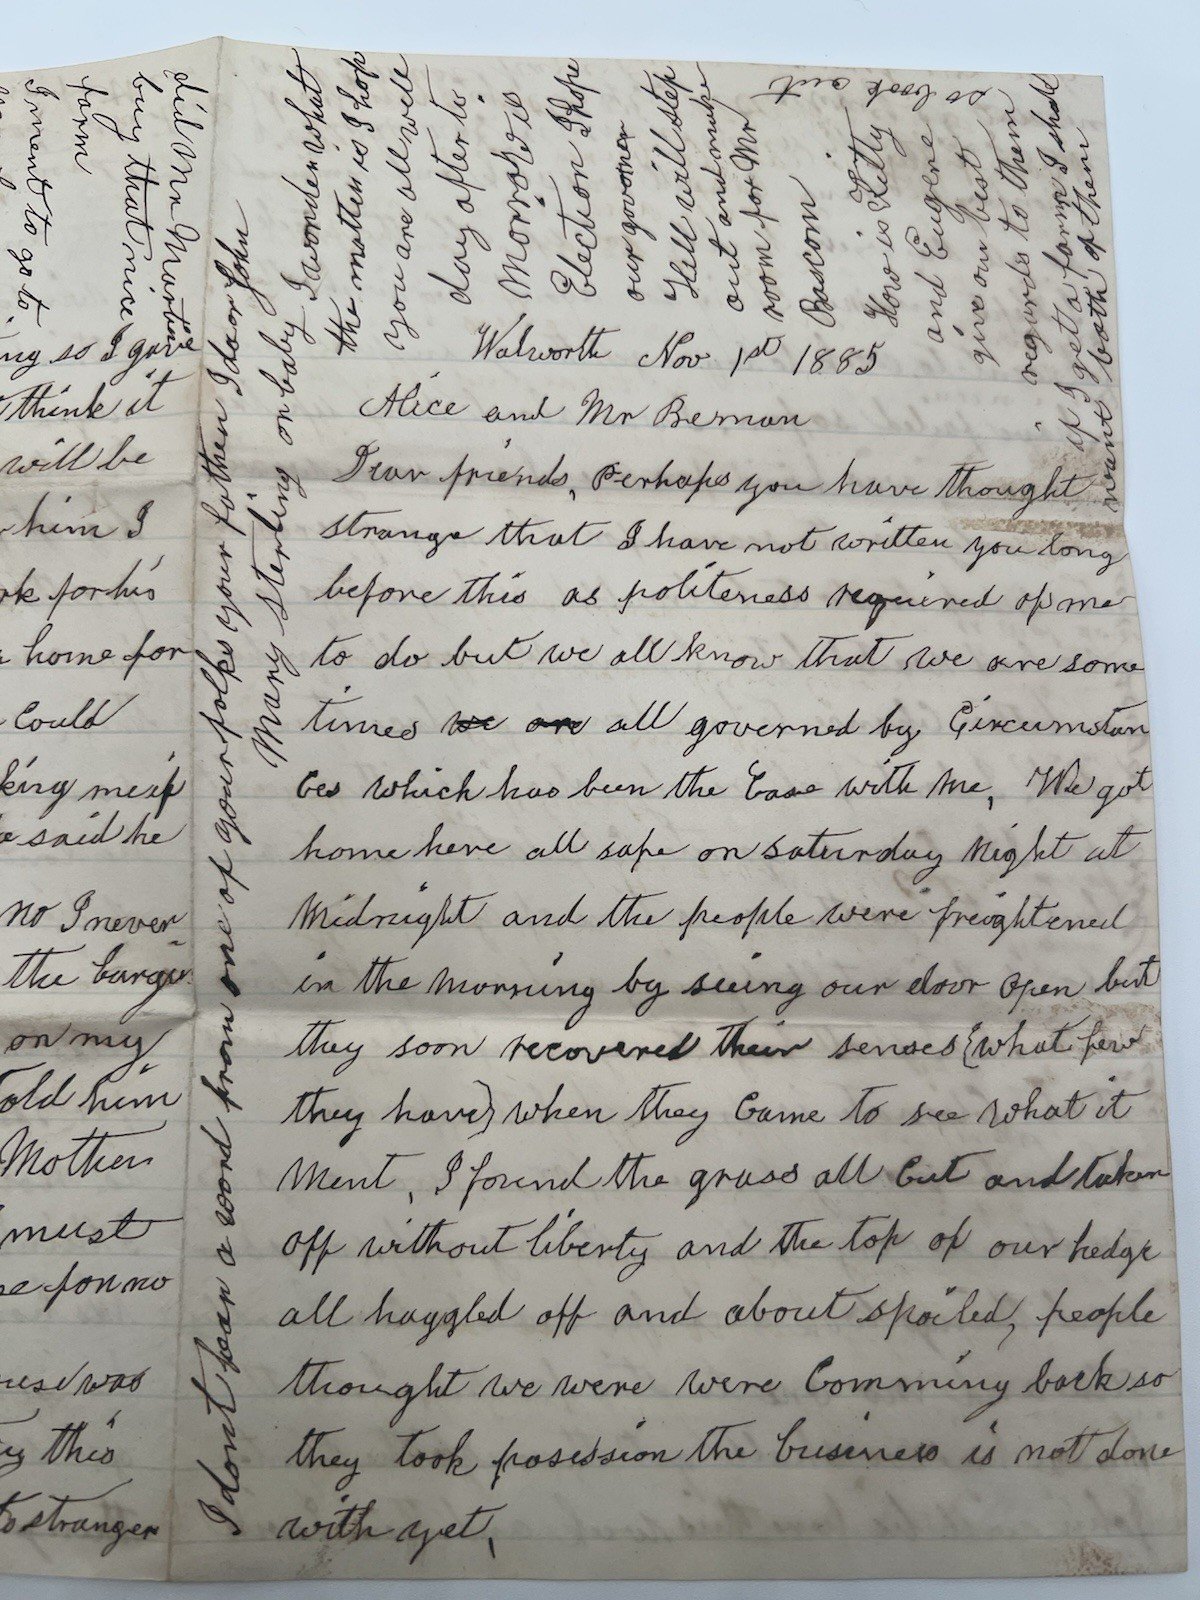 Walworth Nov 1st 1885
Alice and Mr Beman
Dear friends, Perhaps you have thought
strange that I have not written you long
before this as politeness required of me
to do but we all know that we are some
times we are all governed by Circumstan
ces which has been the Case with me, We got
home here all safe on Saturday Night at
Midnight and the people were freightened
in the Morning by seeing our door open but
they soon recovered their senses {what few
they have} when they Came to see what it
Ment, I found the grass all Cut and taken
off without liberty and the top of our hedge
all haggled off and about spoiled, people
thought we were were Comming back so
they took posession the business is not done
with yet,
I dont hear a word from one of your folks your father Ida or John
Mary sterling or baby I wonder what
the matter is I hop
you are all well
day after to
Morrow is
Election I hope
our governor
Hill will step
out and make
room for Mr
Bascom
How is Kitty
and Eugene
give our best
regards to them
if I get a farm I shall
want both of them
so look out
did Mr Martin
buy that nice
farm
I ment to go to
ing so I gave
think it
will be
him I
rk for his
home for
Could
king me if
said he
no I never
the bargin
on my
old him
Mother
must
for no
was
this
to stranger